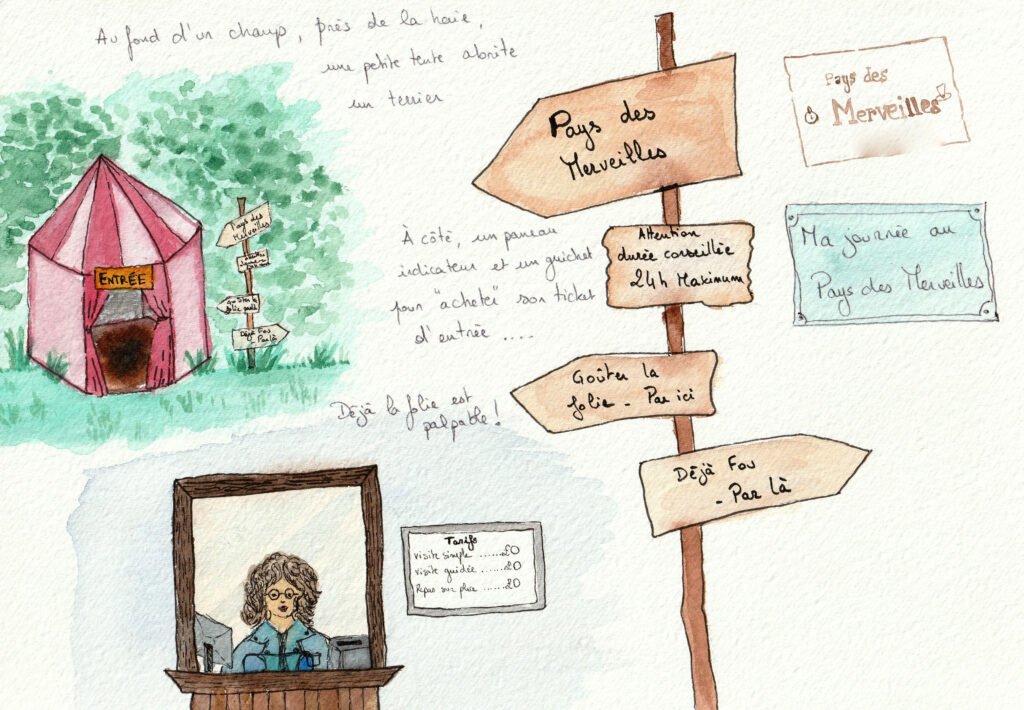 Au fond d'un champ, près de la haie,
une petite tente abrite
un terrier
Pays des
Merveilles
ENTRÉE
Pays des
Merveilles
Goûter la
folie
Déjà Fou
- Par là
À côté, un panneau
indicateur et un guichet
pour "acheter" son ticket
d'entrée ....
Déjà la folie est
palpable !
Pays des
Merveilles
Attention
durée conseillée
24h Maximum
Goûter la
folie - Par ici
Déjà Fou
- Par là
Ma journée au
Pays des Merveilles
Tarifs
visite simple ......20
visite guidée ......20
Repas sur place .....20